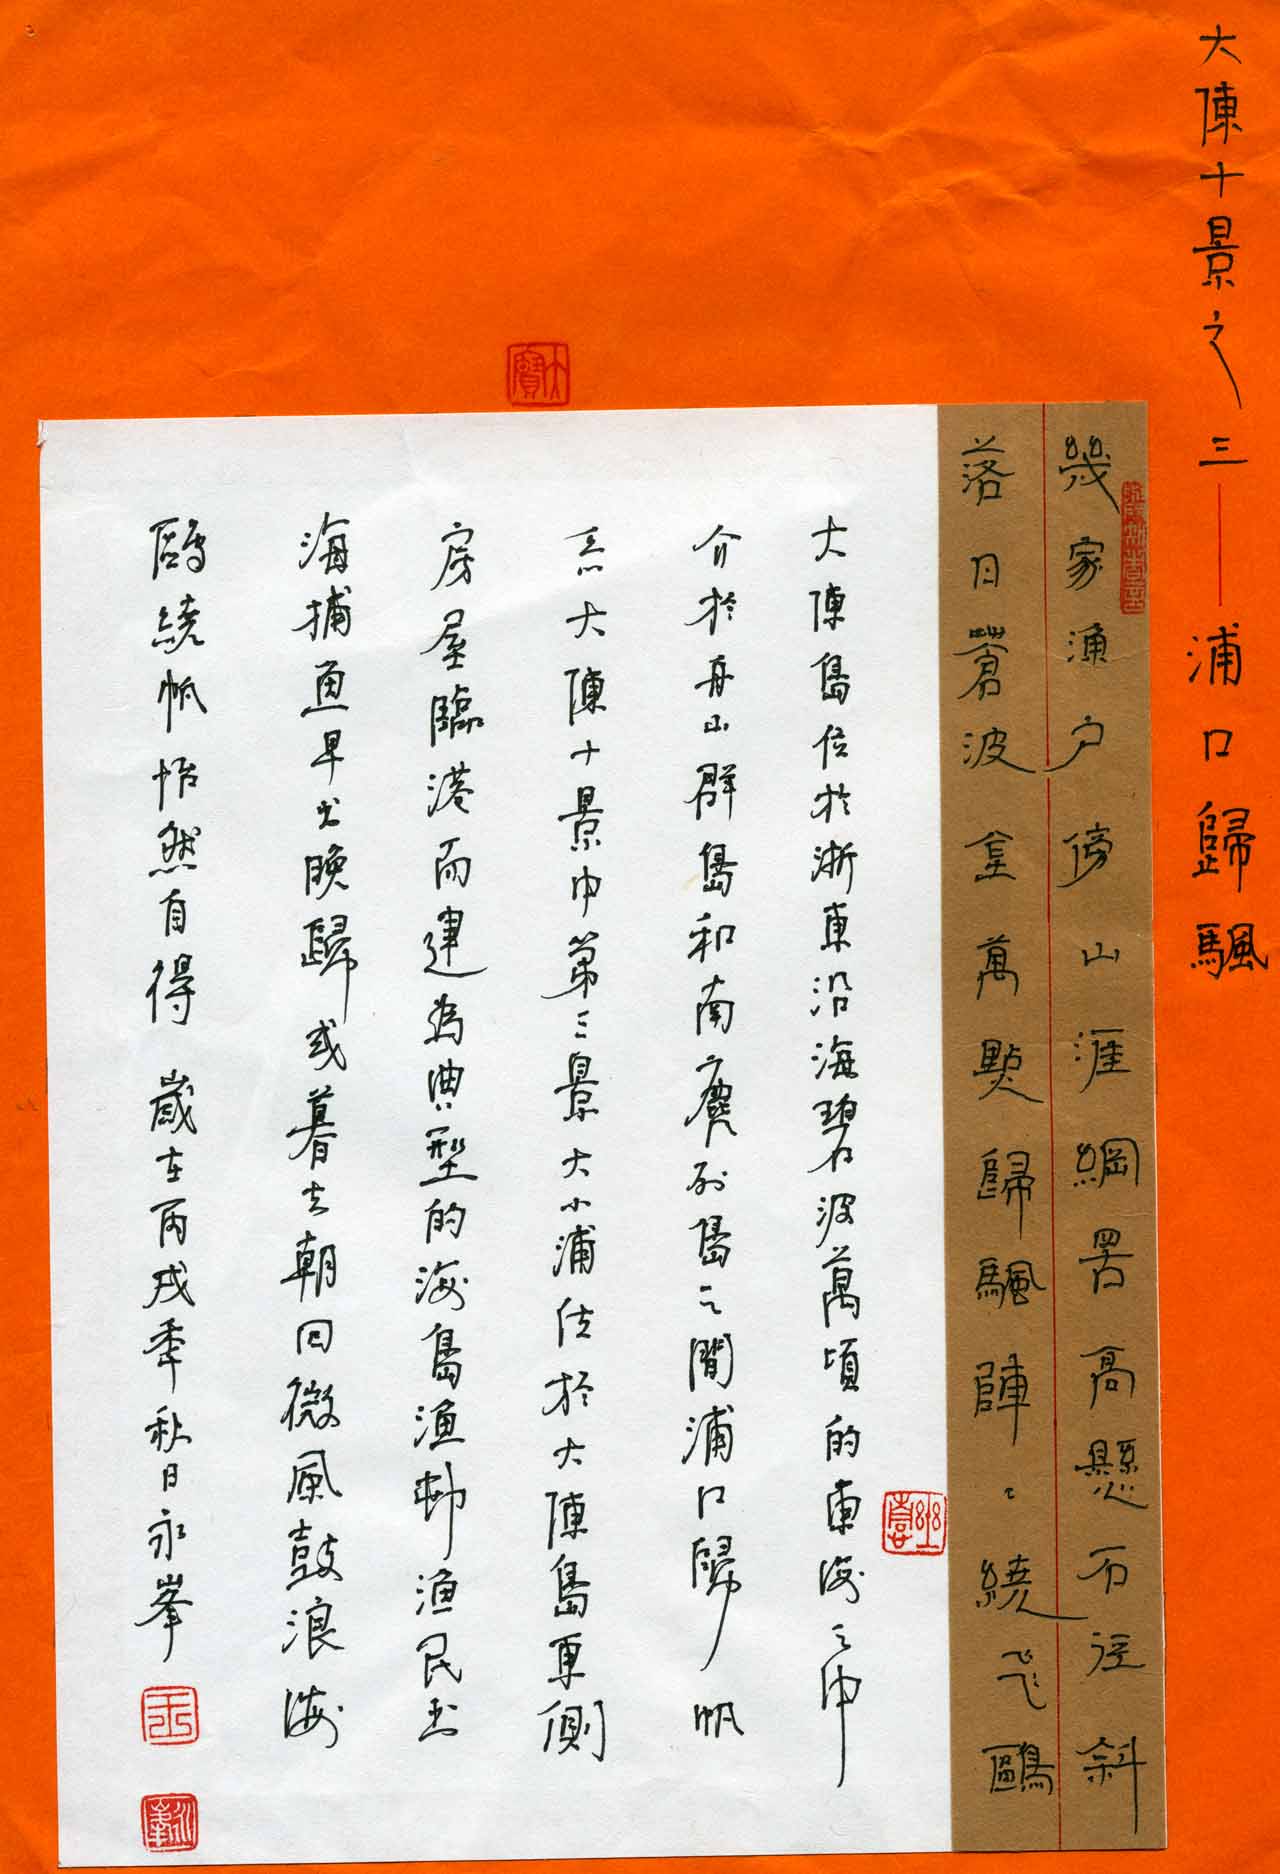 大陳十景之三——浦口歸颿
幾家漁戶傍山涯網罟高懸石徑斜
落日蒼波金萬點歸颿陣〻繞飛鷗
大陳島位於浙東沿海碧波萬頃的東海之中
介於舟山群島和南麂列島之間浦口歸帆
系大陳十景中第三景大小浦位於大陳島東側
房屋臨港而建為典型的海島漁邨漁民出
海捕魚早出晚歸或暮去朝回微風鼓浪海
鷗繞帆怡然自得 歲在丙戌年秋日永峯
王
永峯